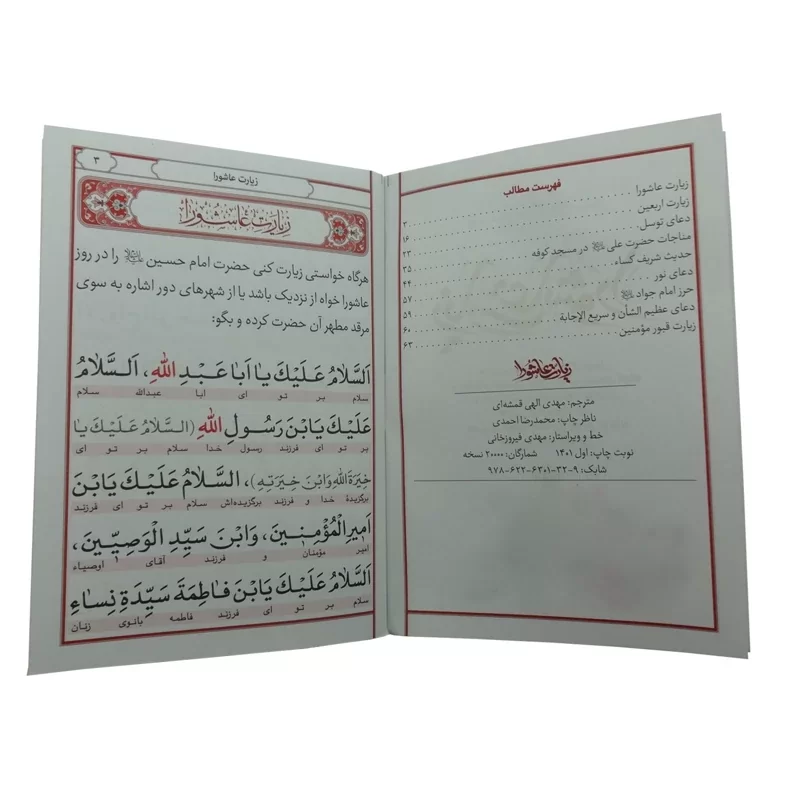 فهرست مطالب
زیارت عاشورا ........ ۳
زیارت اربعین ........ ۱۶
دعای توسل ........ ۲۳
مناجات حضرت علی علیه‌السلام در مسجد کوفه ........ ۳۵
حدیث شریف کساء ........ ۴۴
دعای نور ........ ۵۷
حرز امام جواد علیه‌السلام ........ ۵۹
دعای عظیم الشأن و سریع الإجابة ........ ۶۰
زیارت قبور مؤمنین ........ ۶۳
زیارت عاشورا
مترجم: مهدی الهی قمشه‌ای
ناظر چاپ: محمدرضا احمدی
خط و ویراستار: مهدی فیروزخانی
نوبت چاپ: اول ۱۴۰۱ شمارگان: ۲۰۰۰۰ نسخه
شابک: ۹-۳۲-۶۳۰۱-۶۲۲-۹۷۸
زیارت عاشورا ۳
زیارت عاشورا
هرگاه خواستی زیارت کنی حضرت امام حسین علیه‌السلام را در روز
عاشورا خواه از نزدیک باشد یا از شهرهای دور اشاره به سوی
مرقد مطهر آن حضرت کرده و بگو:
اَلسَّلامُ عَلَیْكَ یا اَبا عَبْدِ اللهِ، اَلسَّلامُ
سلام بر تو ای ابا عبدالله سلام
عَلَیْكَ یَابْنَ رَسُولِ اللهِ (اَلسَّلامُ عَلَیْكَ یا
بر تو ای فرزند رسول خدا سلام بر تو ای
خِیَرَةَ اللهِ وَابْنَ خِیَرَتِهِ)، اَلسَّلامُ عَلَیْكَ یَابْنَ
برگزیدهٔ خدا و فرزند برگزیده‌اش سلام بر تو ای فرزند
اَمیرِ الْمُؤْمِنینَ، وَابْنَ سَیِّدِ الْوَصِیّینَ،
امیر مؤمنان و فرزند آقای اوصیاء
اَلسَّلامُ عَلَیْكَ یَابْنَ فاطِمَةَ سَیِّدَةِ نِساءِ
سلام بر تو ای فرزند فاطمه بانوی زنان